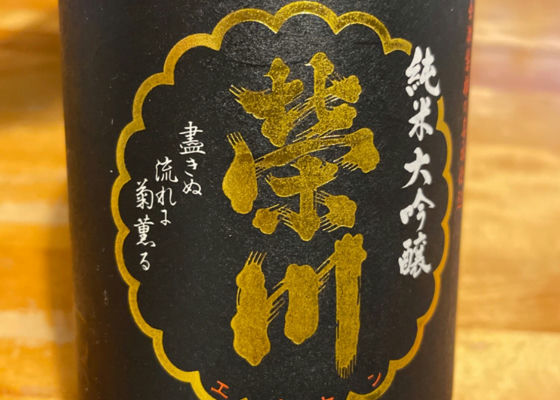 純米大吟醸
榮川
盡きぬ
流れに
菊薫る